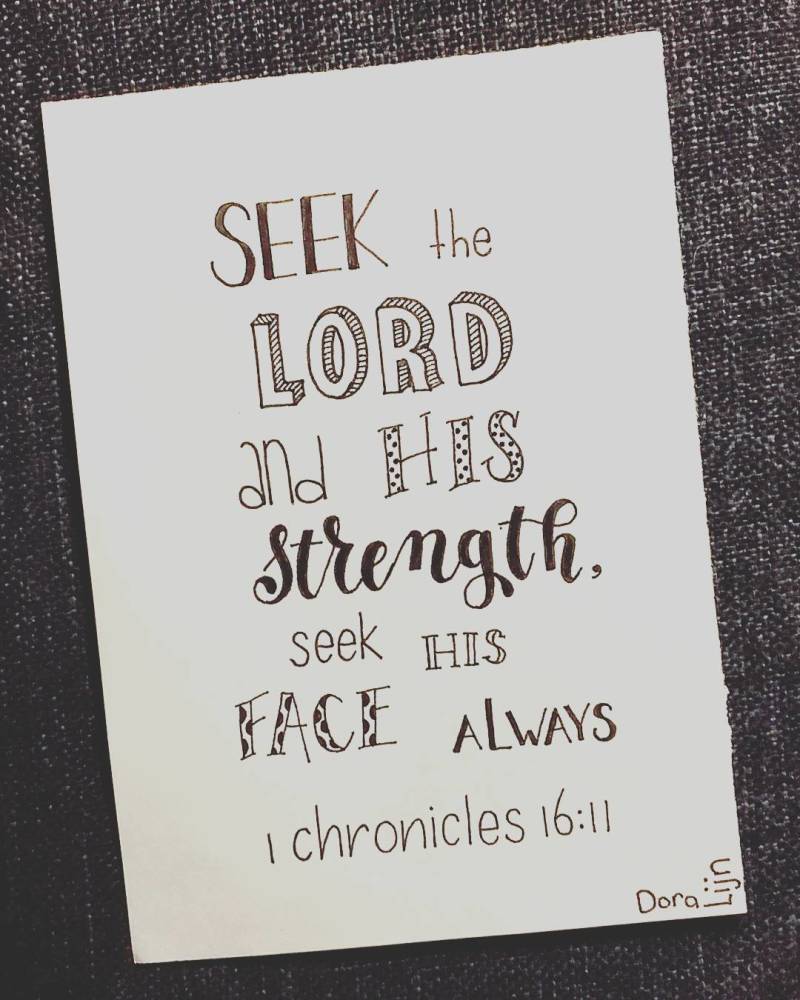 SEEK the
LORD
and HIS
strength,
seek HIS
FACE ALWAYS
1 chronicles 16:11
Dora Lijn